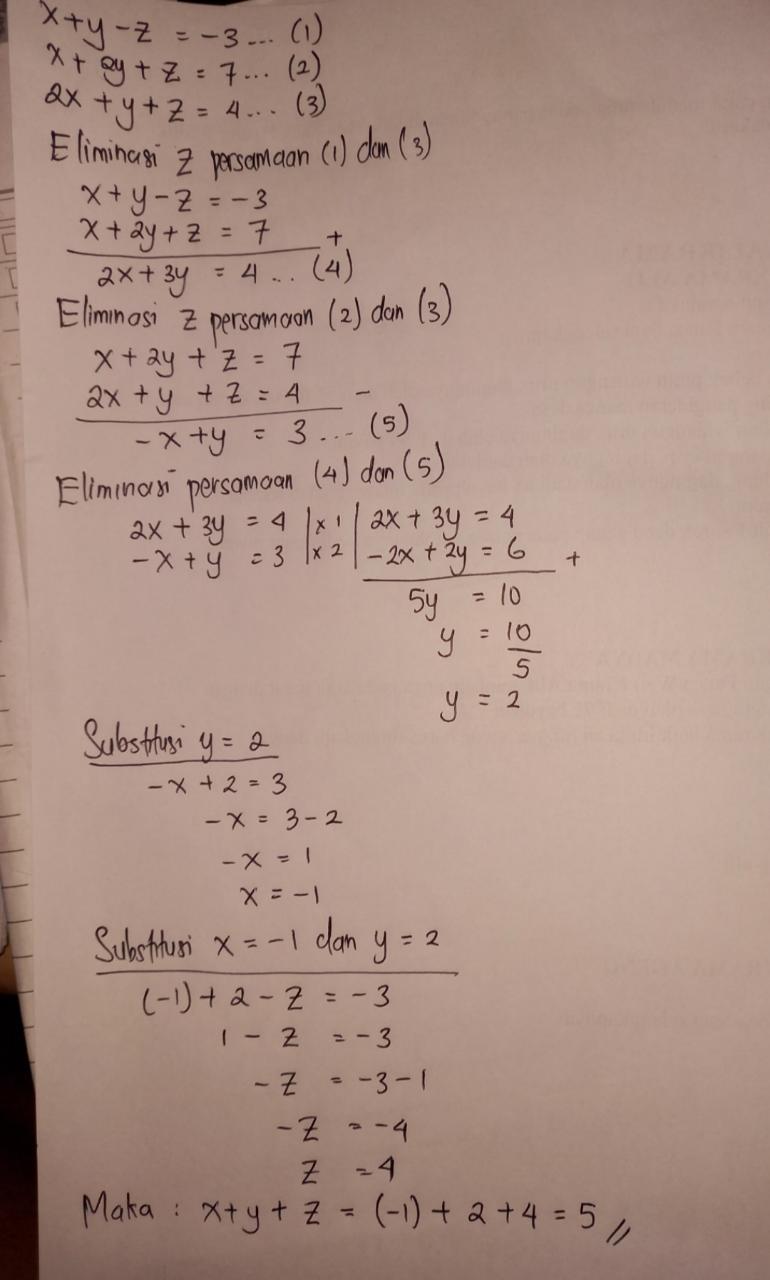 x+y-z = -3 ... (1)
x+2y+z = 7 ... (2)
2x+y+z = 4 ... (3)
Eliminasi z persamaan (1) dan (3)
x+y-z = -3
x+2y+z = 7 +
2x+3y = 4 .. (4)
Eliminasi z persamaan (2) dan (3)
x+2y+z = 7
2x+y+z = 4 -
-x+y = 3 ... (5)
Eliminasi persamaan (4) dan (5)
2x+3y = 4 |x 1| 2x+3y = 4
-x+y = 3 |x 2| -2x+2y = 6 +
5y = 10
y = 10
5
y = 2
Substitusi y = 2
-x+2 = 3
-x = 3-2
-x = 1
x = -1
Substitusi x = -1 dan y = 2
(-1)+2-z = -3
1-z = -3
-z = -3-1
-z = -4
z = 4
Maka : x+y+z = (-1)+2+4 = 5 //